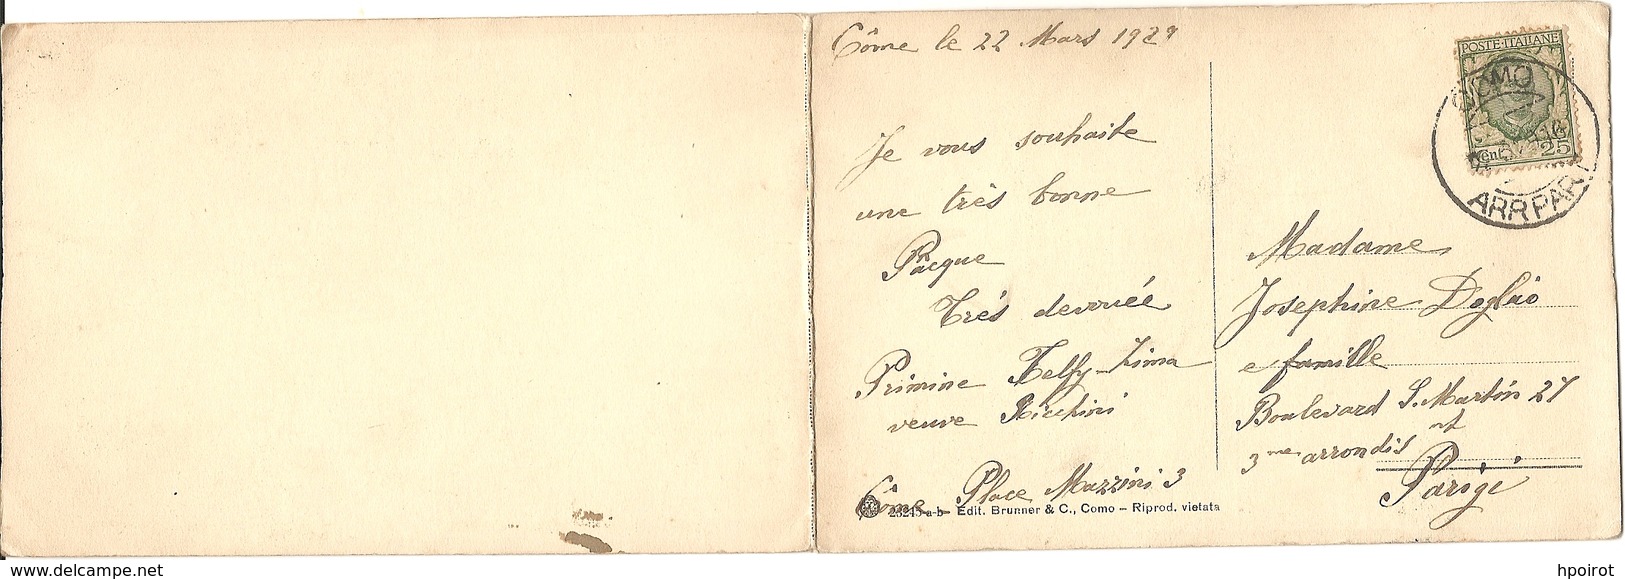 Côme le 22 Mars 1929
Je vous souhaite
une très bonne
Pacque
Très devouée
Primine Telfy-Zima
veuve Ricchini
Côme Place Mazzini 3
23245-a-b - Edit. Brunner & C., Como - Riprod. vietata
POSTE·ITALIANE
Cent. 25
COMO
ARR PAR
Madame
Josephine Doglio
e famille
Boulevard S. Martin 27
3me arrondis nt
Parigi
www.delcampe.net
hpoirot